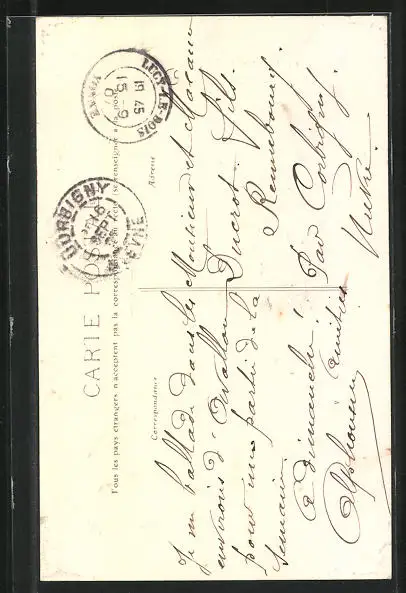 CARTE POSTALE
Tous les pays étrangers n'acceptent pas la correspondance au recto (se renseigner à la poste)
Correspondance
Adresse
LUCY-LE-BOIS
19 45
15 -9
07
YONNE
CORBIGNY
16
SEPT
NIÈVRE
Je me ballade dans les
environs d'Avallon
pour une partie de la
semaine.
à dimanche!
amitiés
Alphonse
Monsieur et Madame
Ducrot fils.
Rennebourg.
Par Corbigny.
Nièvre.